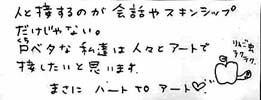 人と接するのが会話やスキンシップ
だけじゃない。
口ベタな私達は人々とアートで
接したいと思います。
まさにハート to アート♡
くち
りんご虫
チクラク.